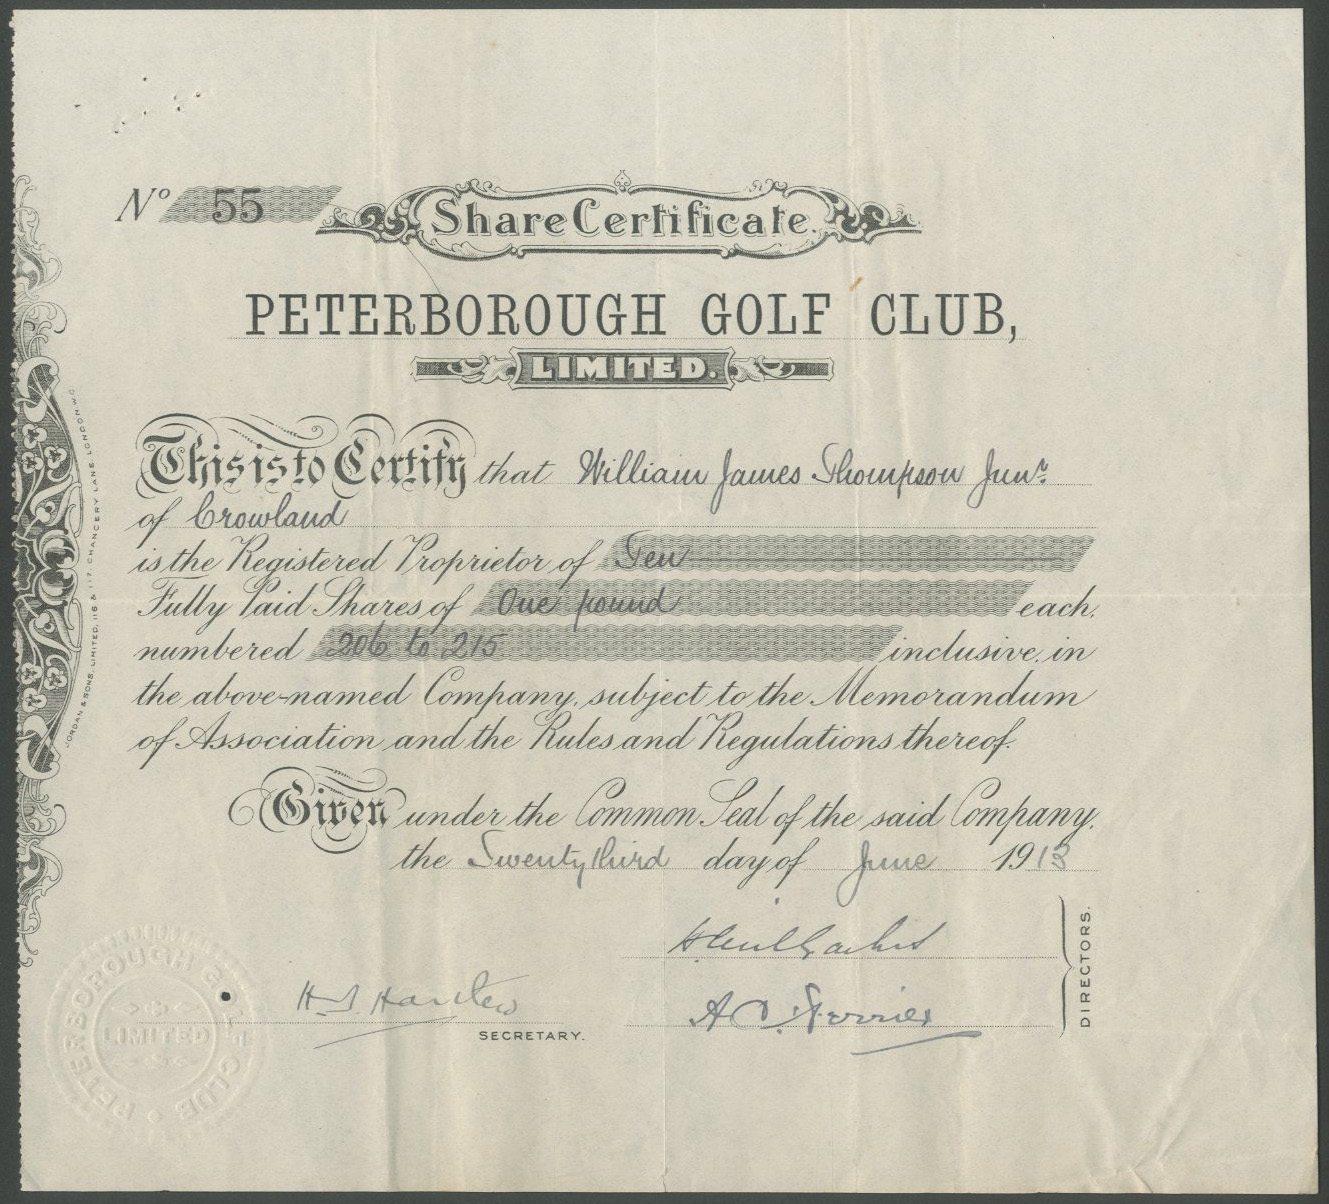 Nº 55 Share Certificate.
PETERBOROUGH GOLF CLUB,
LIMITED.
This is to Certify that William James Thompson Junr.
of Crowland
is the Registered Proprietor of Ten
Fully Paid Shares of One pound each,
numbered 206 to 215 inclusive, in
the above-named Company, subject to the Memorandum
of Association and the Rules and Regulations thereof.
Given under the Common Seal of the said Company,
the Twenty third day of June 1913
DIRECTORS.
SECRETARY.
PETERBOROUGH GOLF CLUB
LIMITED
JORDAN & SONS, LIMITED, 116 & 117, CHANCERY LANE, LONDON, W.C.